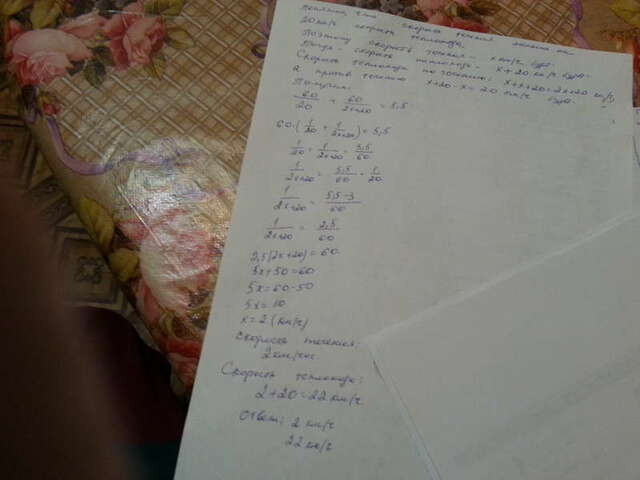 понятно, что скорость течения меньше на
20 км/ч скорости теплохода.
Поэтому скорость течения – x км/ч будет.
Тогда – скорость теплохода – x + 20 км/ч будет.
Скорость теплохода по течению: x+x+20=2x+20 км/ч
а против течению x+20-x = 20 км/ч будет.
Получим:
60/20 + 60/2x+20 = 5,5
60·(1/20 + 1/2x+20) = 5,5
1/20 + 1/2x+20 = 5,5/60
1/2x+20 = 5,5/60 - 1/20
1/2x+20 = 5,5-3/60
1/2x+20 = 2,5/60
2,5(2x+20)=60
5x+50=60
5x=60-50
5x=10
x=2 (км/ч)
Скорость течения:
2 км/час
Скорость теплохода:
2+20=22 км/ч
Ответ: 2 км/ч
22 км/ч